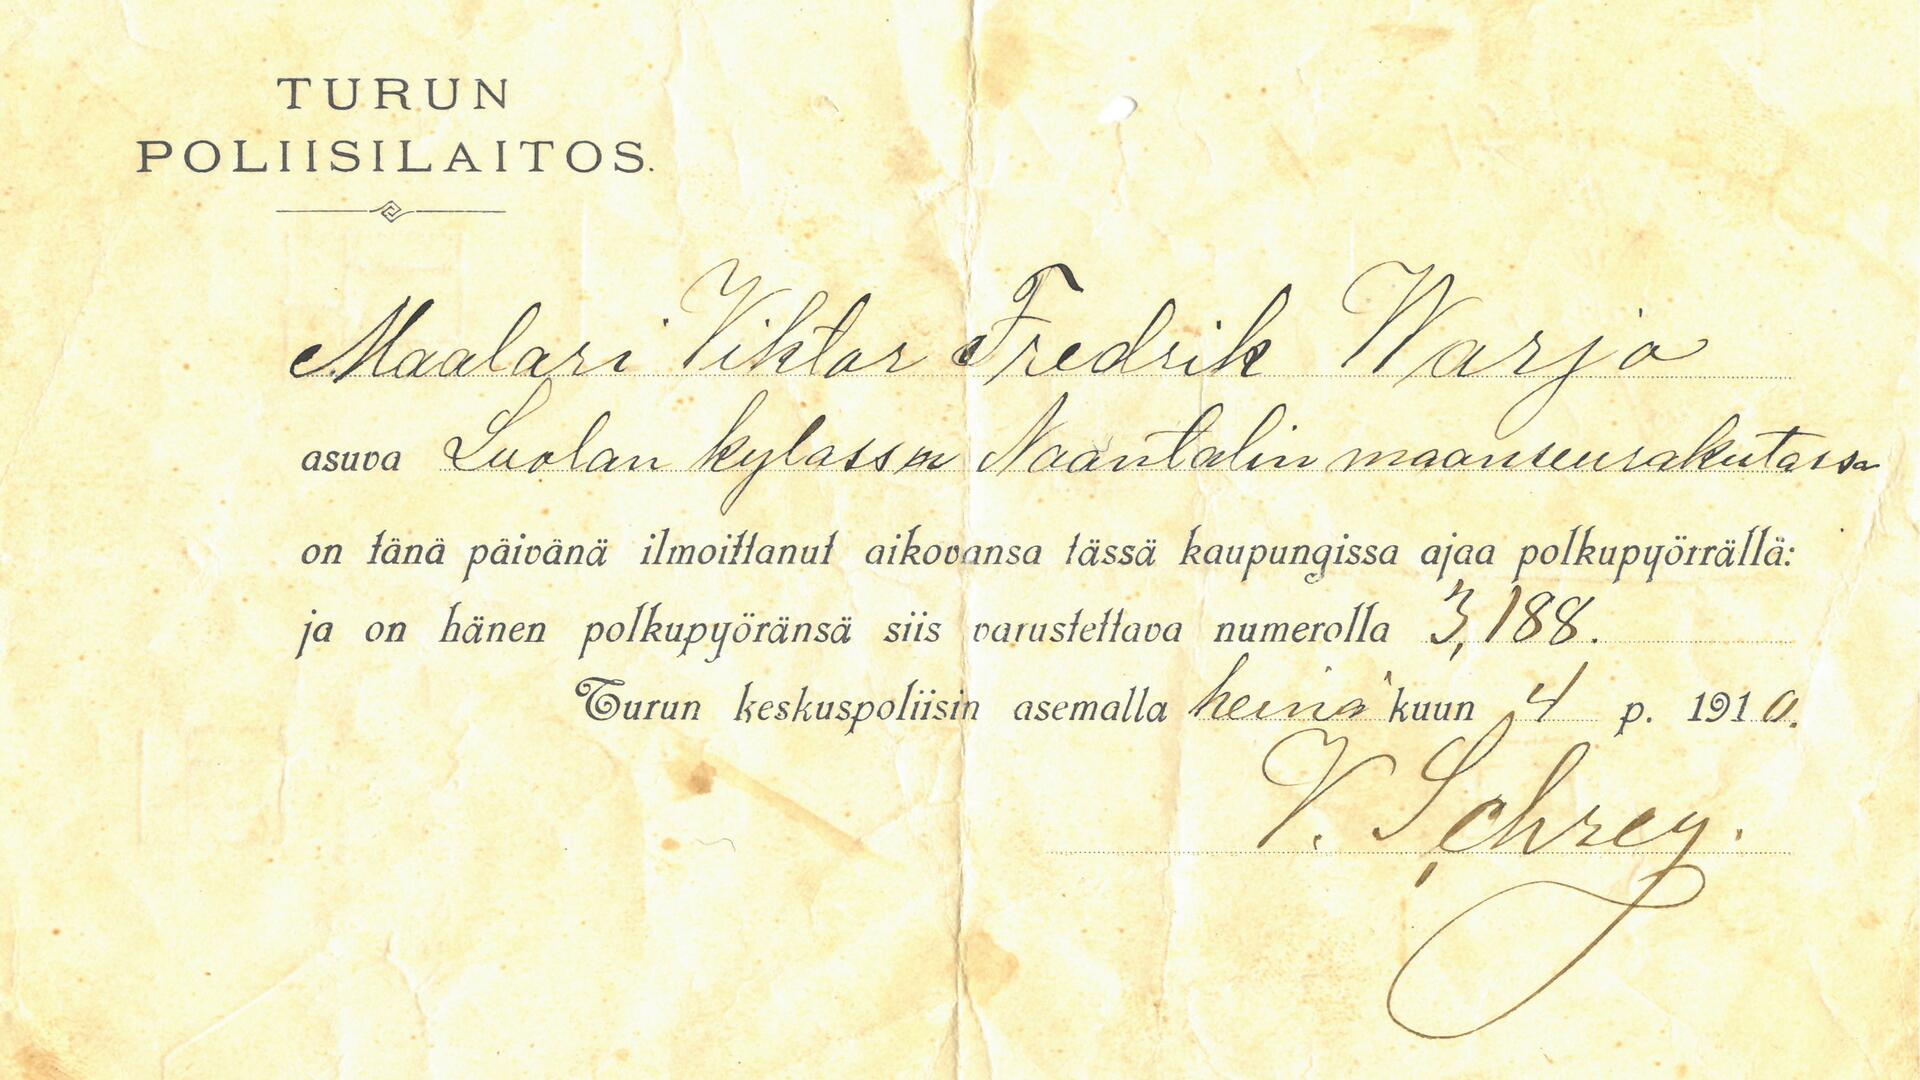 TURUN
POLIISILAITOS.
Maalari Viktor Fredrik Warjo
asuva Luolan kylassa Naantalin maanseurakutassa
on tänä päivänä ilmoittanut aikovansa tässä kaupungissa ajaa polkupyörrällä:
ja on hänen polkupyöränsä siis varustettava numerolla 3,188.
Turun keskuspoliisin asemalla heinä kuun 4 p. 1910.
V. Schrey.